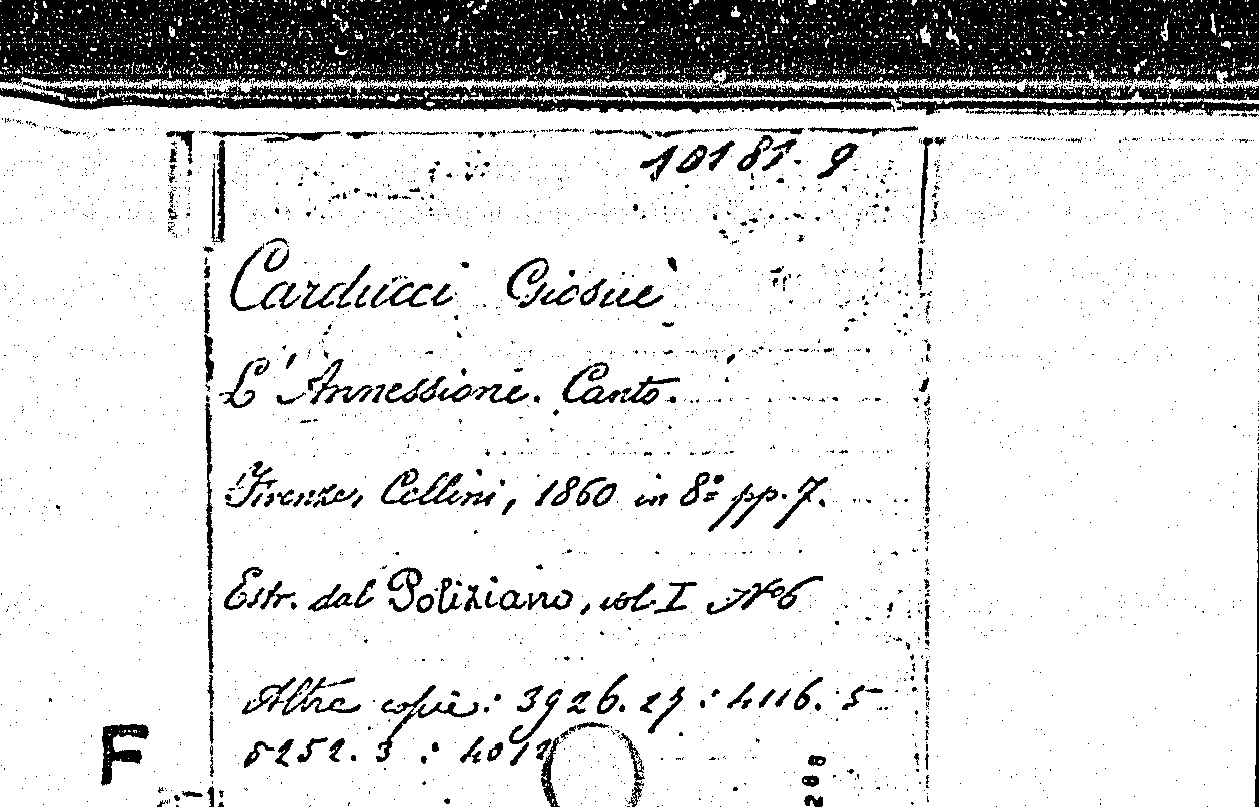 10181. 9
Carducci Giosuè
L'Annessione. Canto.
Firenze, Cellini, 1860 in 8º pp. 7.
Estr. dal Poliziano, vol. I Nº 6
Altre copie: 3926. 27 : 4116. 5
5252. 3 : 4012
F
208